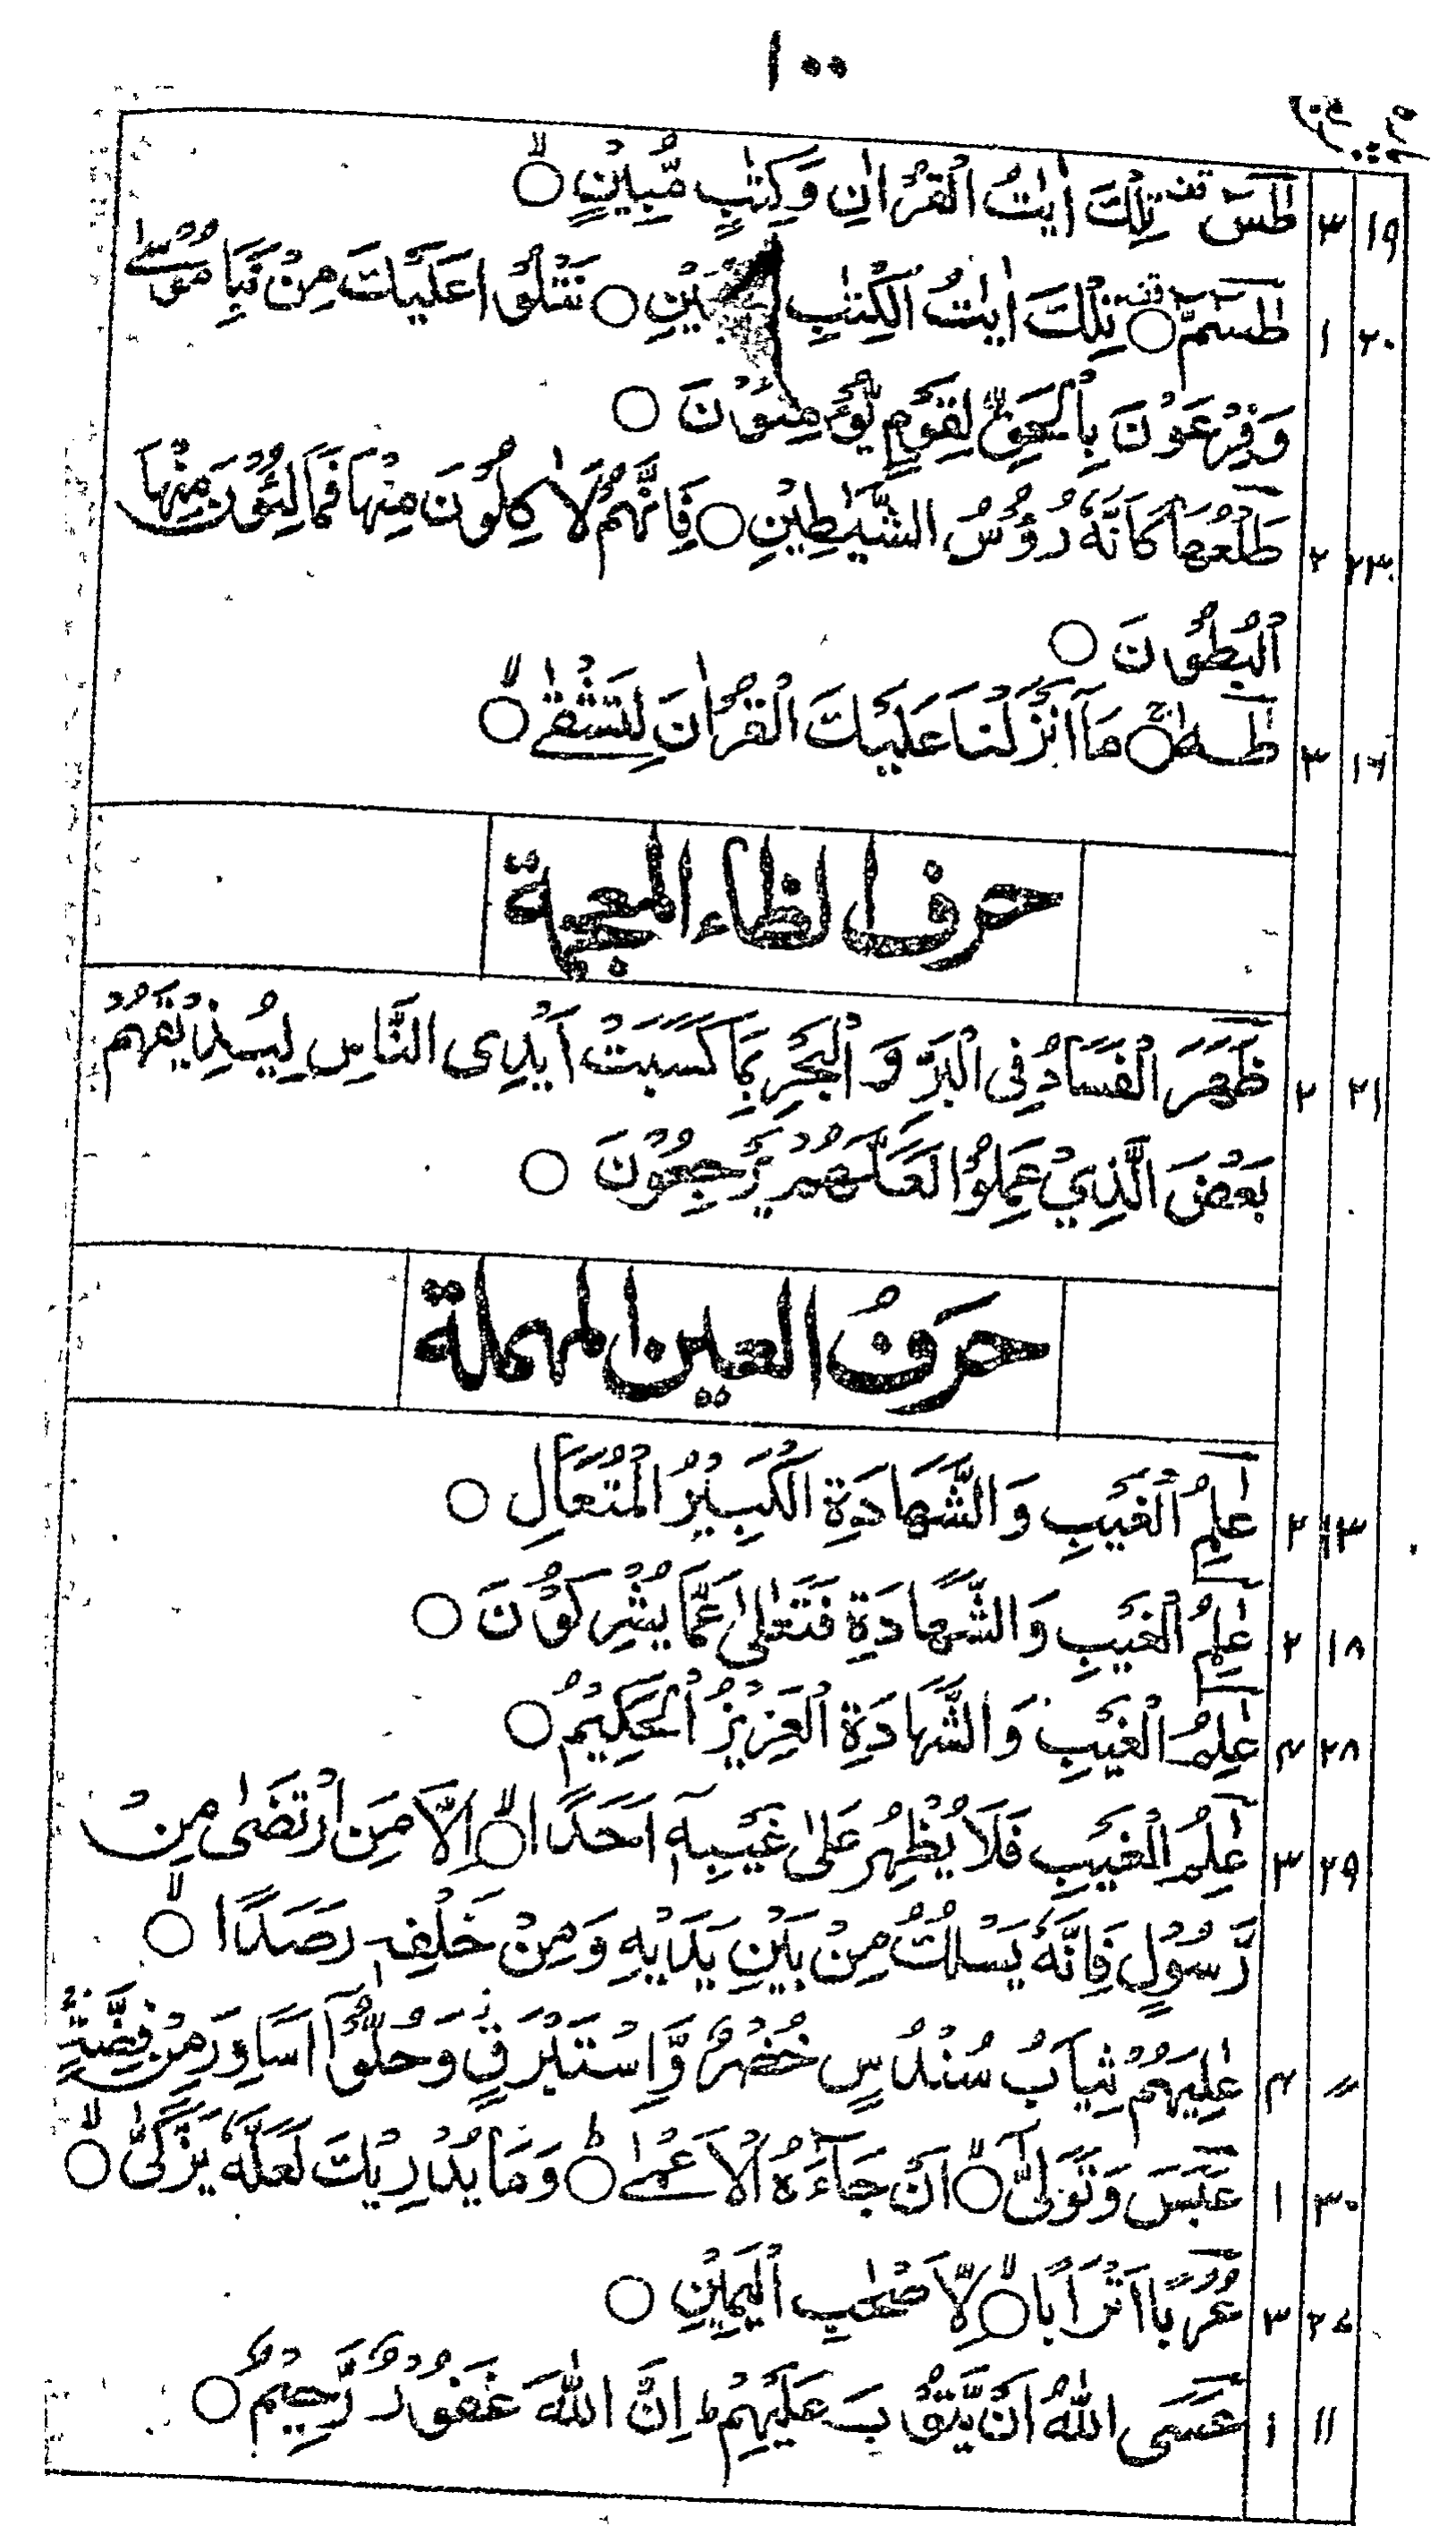 ١٠٠
پارہ ربع
١٩ ٣ طٰسٓ قف تِلْكَ اٰيٰتُ الْقُرْاٰنِ وَكِتٰبٍ مُّبِيْنٍ ○ۙ
٢٠ ١ طٰسٓمّٓ ○ قف تِلْكَ اٰيٰتُ الْكِتٰبِ الْمُبِيْنِ ○ نَتْلُوْا عَلَيْكَ مِنْ نَّبَاِ مُوْسٰى
وَفِرْعَوْنَ بِالْحَقِّ لِقَوْمٍ يُّؤْمِنُوْنَ ○
٢٣ ٢ طَلْعُهَا كَاَنَّهٗ رُؤُسُ الشَّيٰطِيْنِ ○ فَاِنَّهُمْ لَاٰكِلُوْنَ مِنْهَا فَمَالِئُوْنَ مِنْهَا
الْبُطُوْنَ ○
١٦ ٣ طٰهٰ ○ۚ مَآ اَنْزَلْنَا عَلَيْكَ الْقُرْاٰنَ لِتَشْقٰٓى ○ۙ
حرف الظاء المعجمة
٢١ ٢ ظَهَرَ الْفَسَادُ فِى الْبَرِّ وَ الْبَحْرِ بِمَا كَسَبَتْ اَيْدِى النَّاسِ لِيُذِيْقَهُمْ
بَعْضَ الَّذِيْ عَمِلُوْا لَعَلَّهُمْ يَرْجِعُوْنَ ○
حَرفُ العين المهملة
١٣ ٢ عٰلِمُ الْغَيْبِ وَالشَّهَادَةِ الْكَبِيْرُ الْمُتَعَالِ ○
١٨ ٢ عٰلِمِ الْغَيْبِ وَالشَّهَادَةِ فَتَعٰلٰى عَمَّا يُشْرِكُوْنَ ○
٢٨ ٤ عٰلِمُ الْغَيْبِ وَالشَّهَادَةِ الْعَزِيْزُ الْحَكِيْمُ ○
٢٩ ٣ عٰلِمُ الْغَيْبِ فَلَا يُظْهِرُ عَلٰى غَيْبِهٖٓ اَحَدًا ○ۙ اِلَّا مَنِ ارْتَضٰى مِنْ
رَّسُوْلٍ فَاِنَّهٗ يَسْلُكُ مِنْ بَيْنِ يَدَيْهِ وَمِنْ خَلْفِهٖ رَصَدًا ○ۙ
〃 ٤ عٰلِيَهُمْ ثِيَابُ سُنْدُسٍ خُضْرٌ وَّاِسْتَبْرَقٌ وَحُلُّوْٓا اَسَاوِرَ مِنْ فِضَّةٍ
٣٠ ١ عَبَسَ وَتَوَلّٰٓى ○ۙ اَنْ جَآءَهُ الْاَعْمٰى ○ؕ وَمَا يُدْرِيْكَ لَعَلَّهٗ يَزَّكّٰٓى ○ۙ
٢٧ ٣ عُرُبًا اَتْرَابًا ○ۙ لِّاَصْحٰبِ الْيَمِيْنِ ○
١١ ١ عَسَى اللّٰهُ اَنْ يَّتُوْبَ عَلَيْهِمْ ؕ اِنَّ اللّٰهَ غَفُوْرٌ رَّحِيْمٌ ○